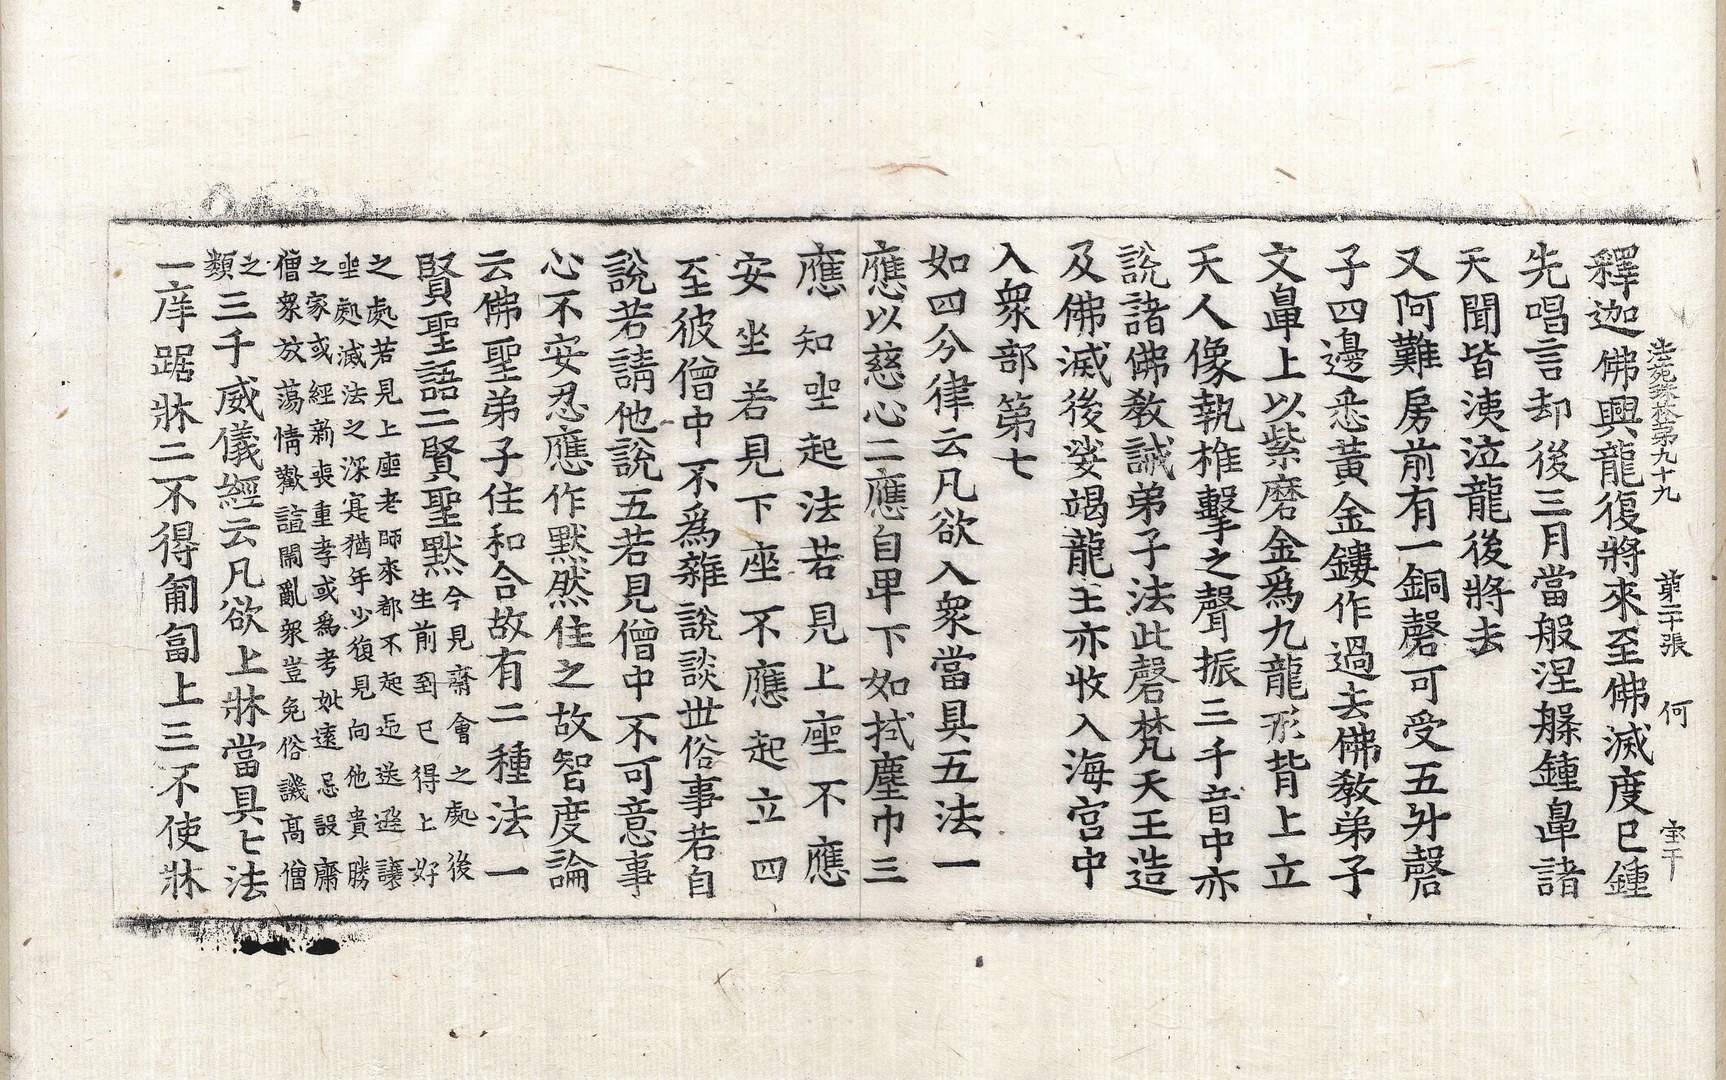 法苑珠林第九十九　第二十張　何
釋迦佛興龍復將來至佛滅度已鍾
先唱言却後三月當般涅槃鍾鼻諸
天聞皆洟泣龍後將去
又阿難房前有一銅磬可受五升磬
子四邊悉黃金鏤作過去佛教弟子
文鼻上以紫磨金爲九龍形背上立
天人像執椎擊之聲振三千音中亦
說諸佛教誡弟子法此磬梵天王造
及佛滅後娑竭龍王亦收入海宮中
入衆部第七
如四分律云凡欲入衆當具五法一
應以慈心二應自卑下如拭塵巾三
應知坐起法若見上座不應
安坐若見下座不應起立四
至彼僧中不爲雜說談世俗事若自
說若請他說五若見僧中不可意事
心不安忍應作默然住之故智度論
云佛聖弟子住和合故有二種法一
賢聖語二賢聖默今見齋會之處後
生前到已得上好
之處若見上座老師來都不起迎送遜讓
坐處滅法之深寔猶年少復見向他貴勝
之家或經新喪重孝或爲考妣遠忌設齋
僧衆放蕩情歡諠鬧亂衆豈免俗譏高僧
之
類三千威儀經云凡欲上牀當具七法
一庠踞牀二不得匍匐上三不使牀